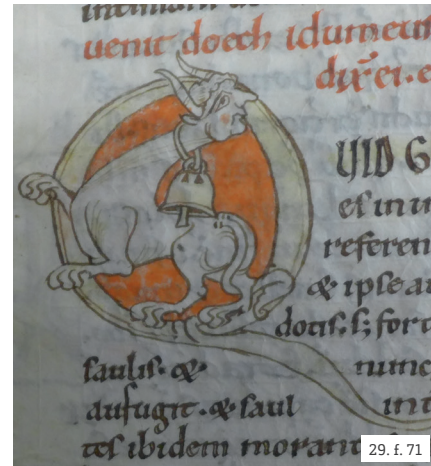 uenit doech idumeus
dix̄ ei. e
UID G
es in
referen
& ipse
dotis. s; fort
saulis. & nunc
aufugit. & saul
tes ibidem morant
29. f. 71